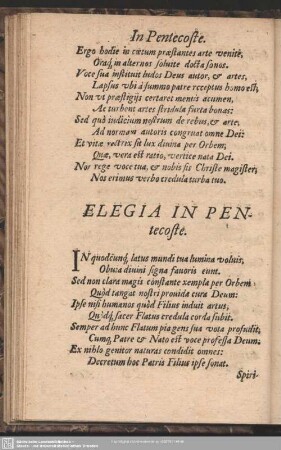 In Pentecoste.
Ergo hodie in cœtum præstantes arte venite,
Oraq; in alternos soluite docta sonos.
Voce sua instituit ludos Deus autor, & artes,
Lapsus vbi à summo patre receptus homo est,
Non vt præstigijs certaret mentis acumen,
Ac turbent artes stridula furta bonas:
Sed quò iudicium nostrum de rebus, & arte,
Ad normam autoris congruat omne Dei:
Et vitæ rectrix sit lux diuina per Orbem,
Quæ, vera est ratio, vertice nata Dei.
Nos rege voce tua, & nobis sis Christe magister,
Nos erimus verbo credula turba tuo.
ELEGIA IN PEN-
tecoste.
IN quodcunq; latus mundi tua lumina voluis,
Obuia diuini signa fauoris eunt.
Sed non clara magis constante exempla per Orbem
Quòd tangat nostri prouida cura Deum:
Ipse nisi humanos quòd Filius induit artus,
Quòdq; sacer Flatus credula corda subit.
Semper ad hunc Flatum pia gens sua vota profudit,
Cumq; Patre & Nato est voce professa Deum:
Ex nihlo genitor naturas condidit omnes:
Decretum hoc Patris Filius ipse sonat.
Spiri-